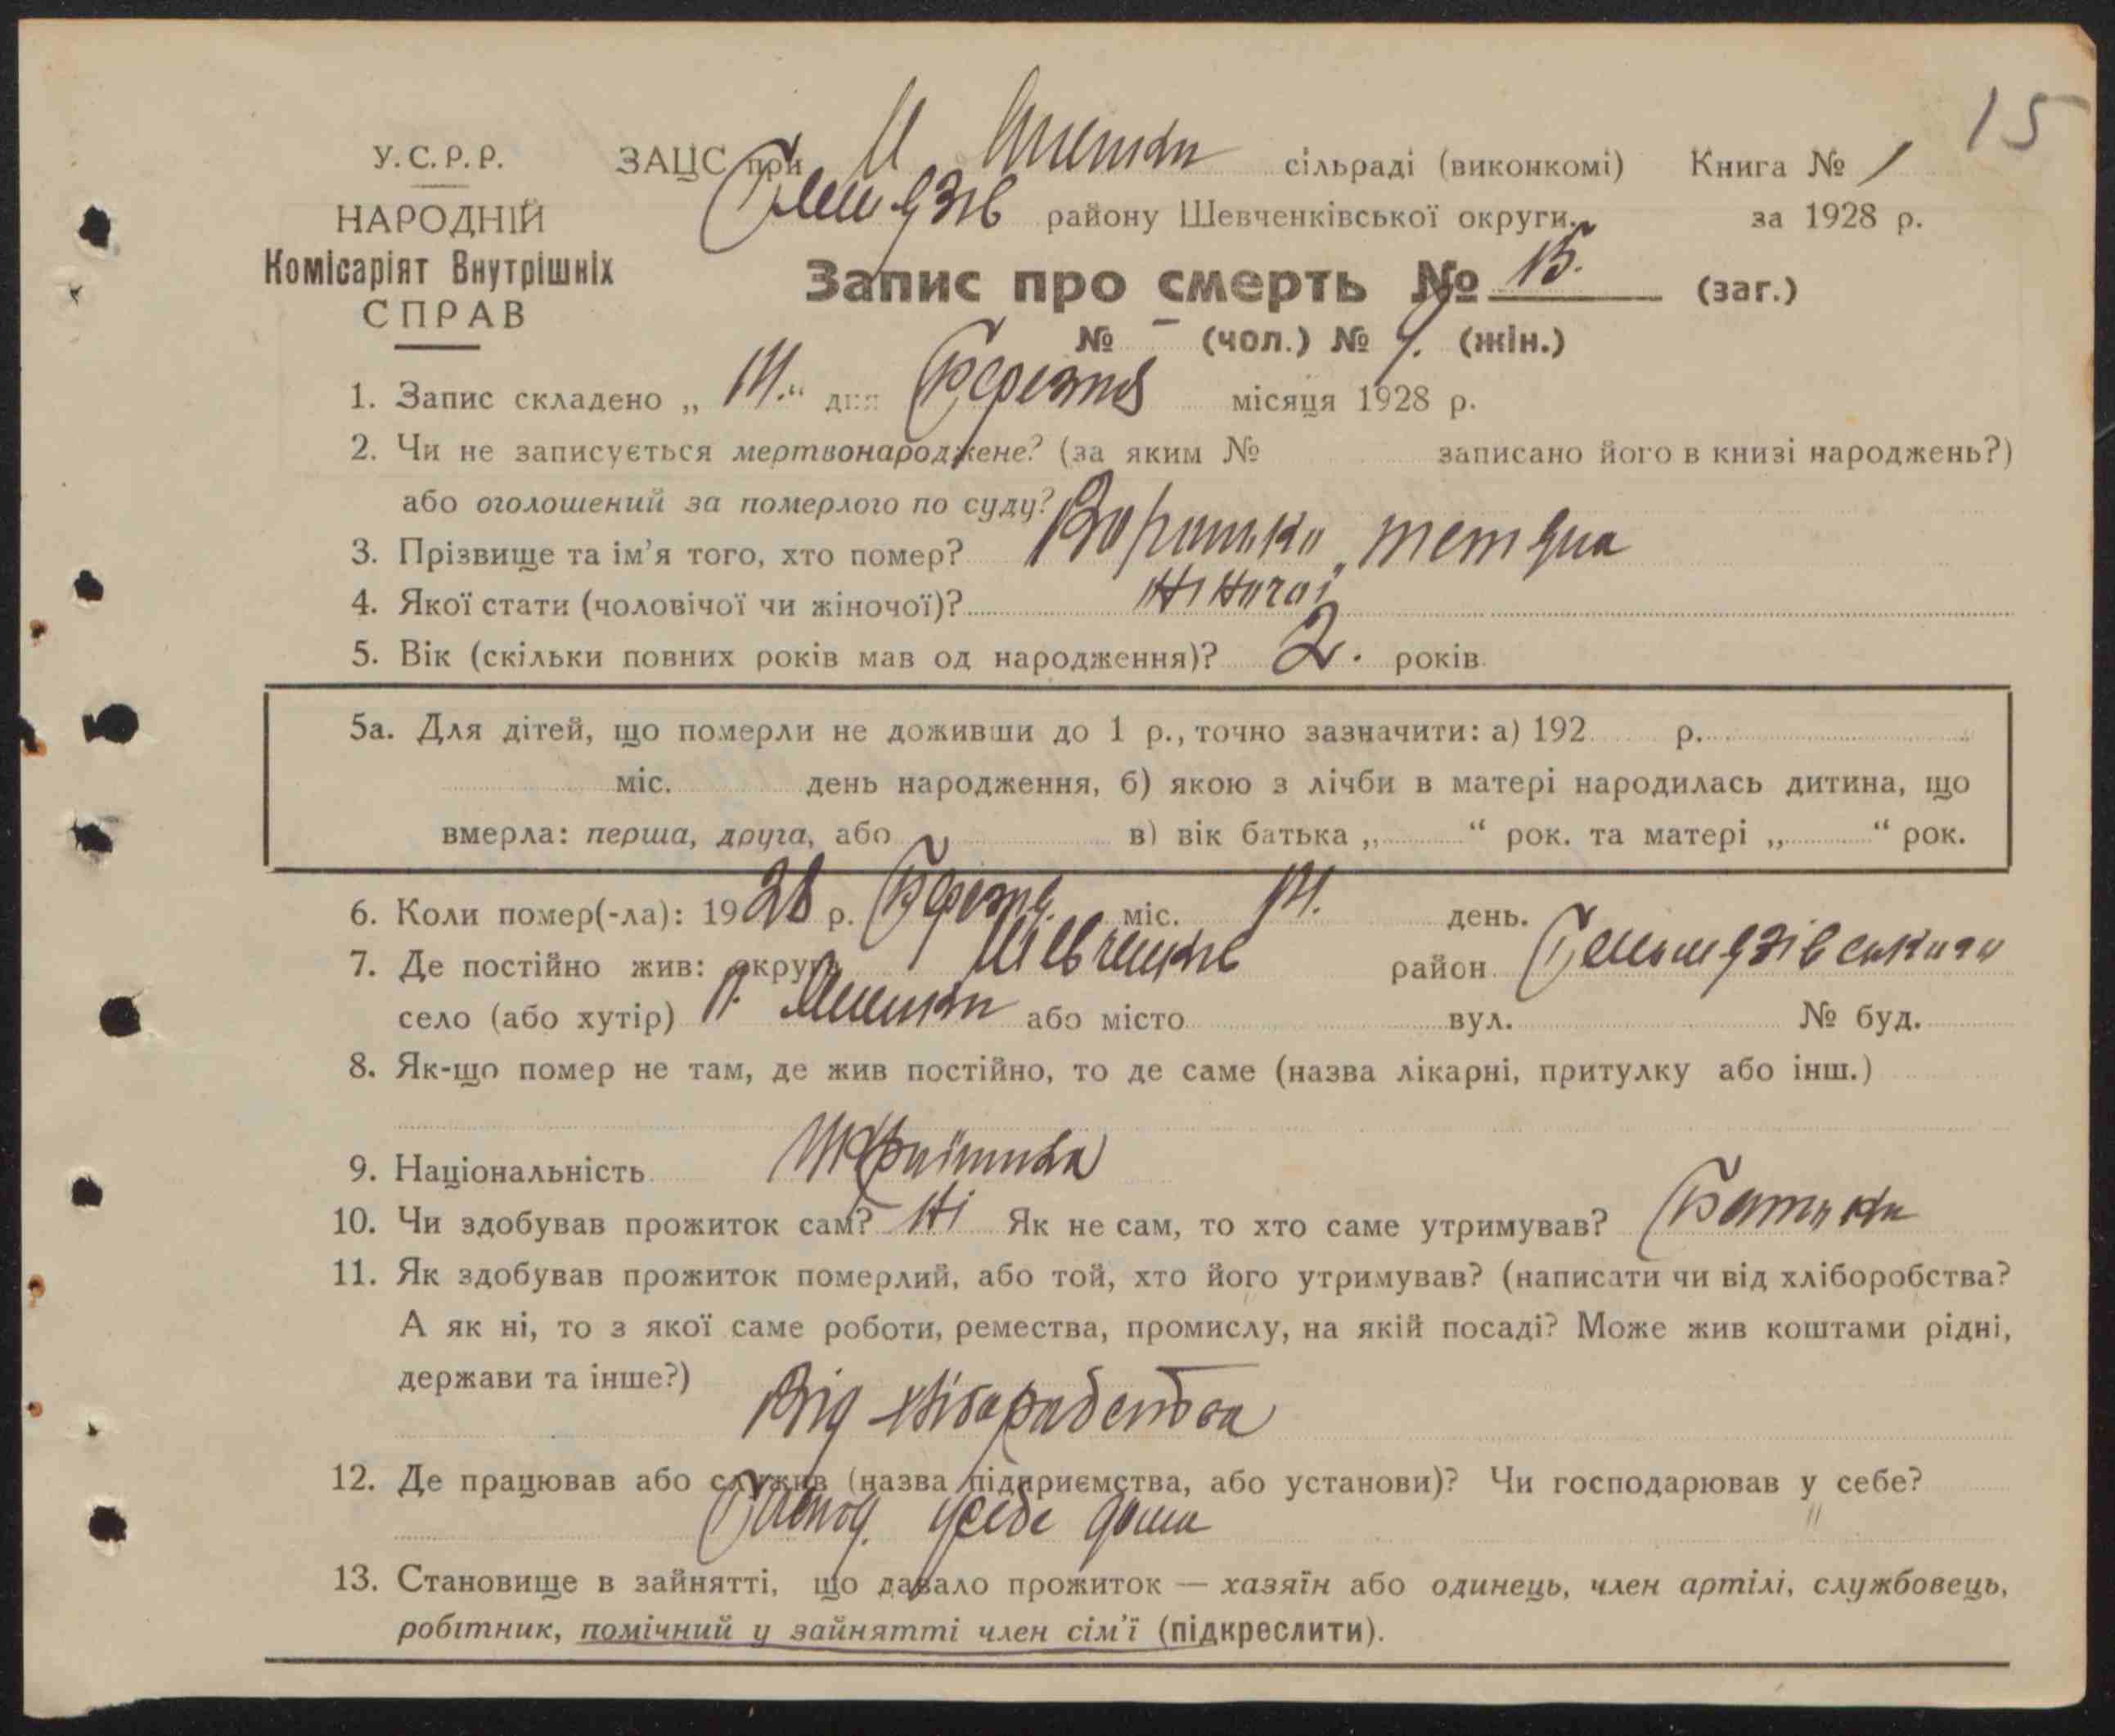 15
У.С.Р.Р. ЗАЦС при сільраді (виконкомі) Книга № 1
НАРОДНІЙ району Шевченківської округи. за 1928 р.
Комісаріят Внутрішніх
СПРАВ
Запис про смерть № 15. (заг.)
№ – (чол.) № 9. (жін.)
1. Запис складено „ “ дня Березня місяця 1928 р.
2. Чи не записується мертвонароджене? (за яким № записано його в книзі народжень?)
або оголошений за померлого по суду?
3. Прізвище та ім'я того, хто помер? Тетяна
4. Якої стати (чоловічої чи жіночої)? Жіночої
5. Вік (скільки повних років мав од народження)? 2. років
5а. Для дітей, що померли не доживши до 1 р., точно зазначити: а) 192 р.
міс. день народження, б) якою з лічби в матері народилась дитина, що
вмерла: перша, друга, або в) вік батька „ “ рок. та матері „ “ рок.
6. Коли помер(-ла): 1928 р. міс. день.
7. Де постійно жив: округа район
село (або хутір) або місто вул. № буд.
8. Як-що помер не там, де жив постійно, то де саме (назва лікарні, притулку або інш.)
9. Національність
10. Чи здобував прожиток сам? Ні Як не сам, то хто саме утримував? Батьки
11. Як здобував прожиток померлий, або той, хто його утримував? (написати чи від хліборобства?
А як ні, то з якої саме роботи, ремества, промислу, на якій посаді? Може жив коштами рідні,
держави та інше?)
Від хліборобства
12. Де працював або служив (назва підприємства, або установи)? Чи господарював у себе?
Господ. усебе дома
13. Становище в зайнятті, що давало прожиток — хазяїн або одинець, член артілі, службовець,
робітник, помічний у зайнятті член сім'ї (підкреслити).